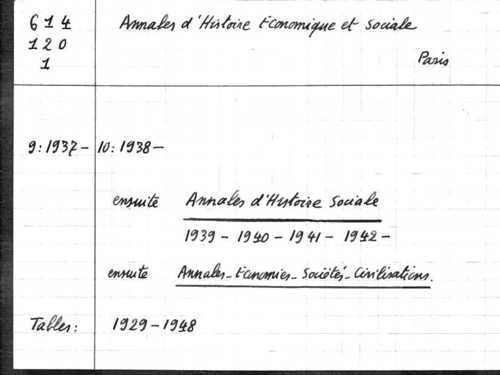 614 Annales d'Histoire Economique et Sociale
120
1 Paris
9:1937- 10:1938-
ensuite Annales d'Histoire Sociale
1939 - 1940 - 1941 - 1942 -
ensuite Annales-Economies-Sociétés-Civilisations.
Tables: 1929-1948